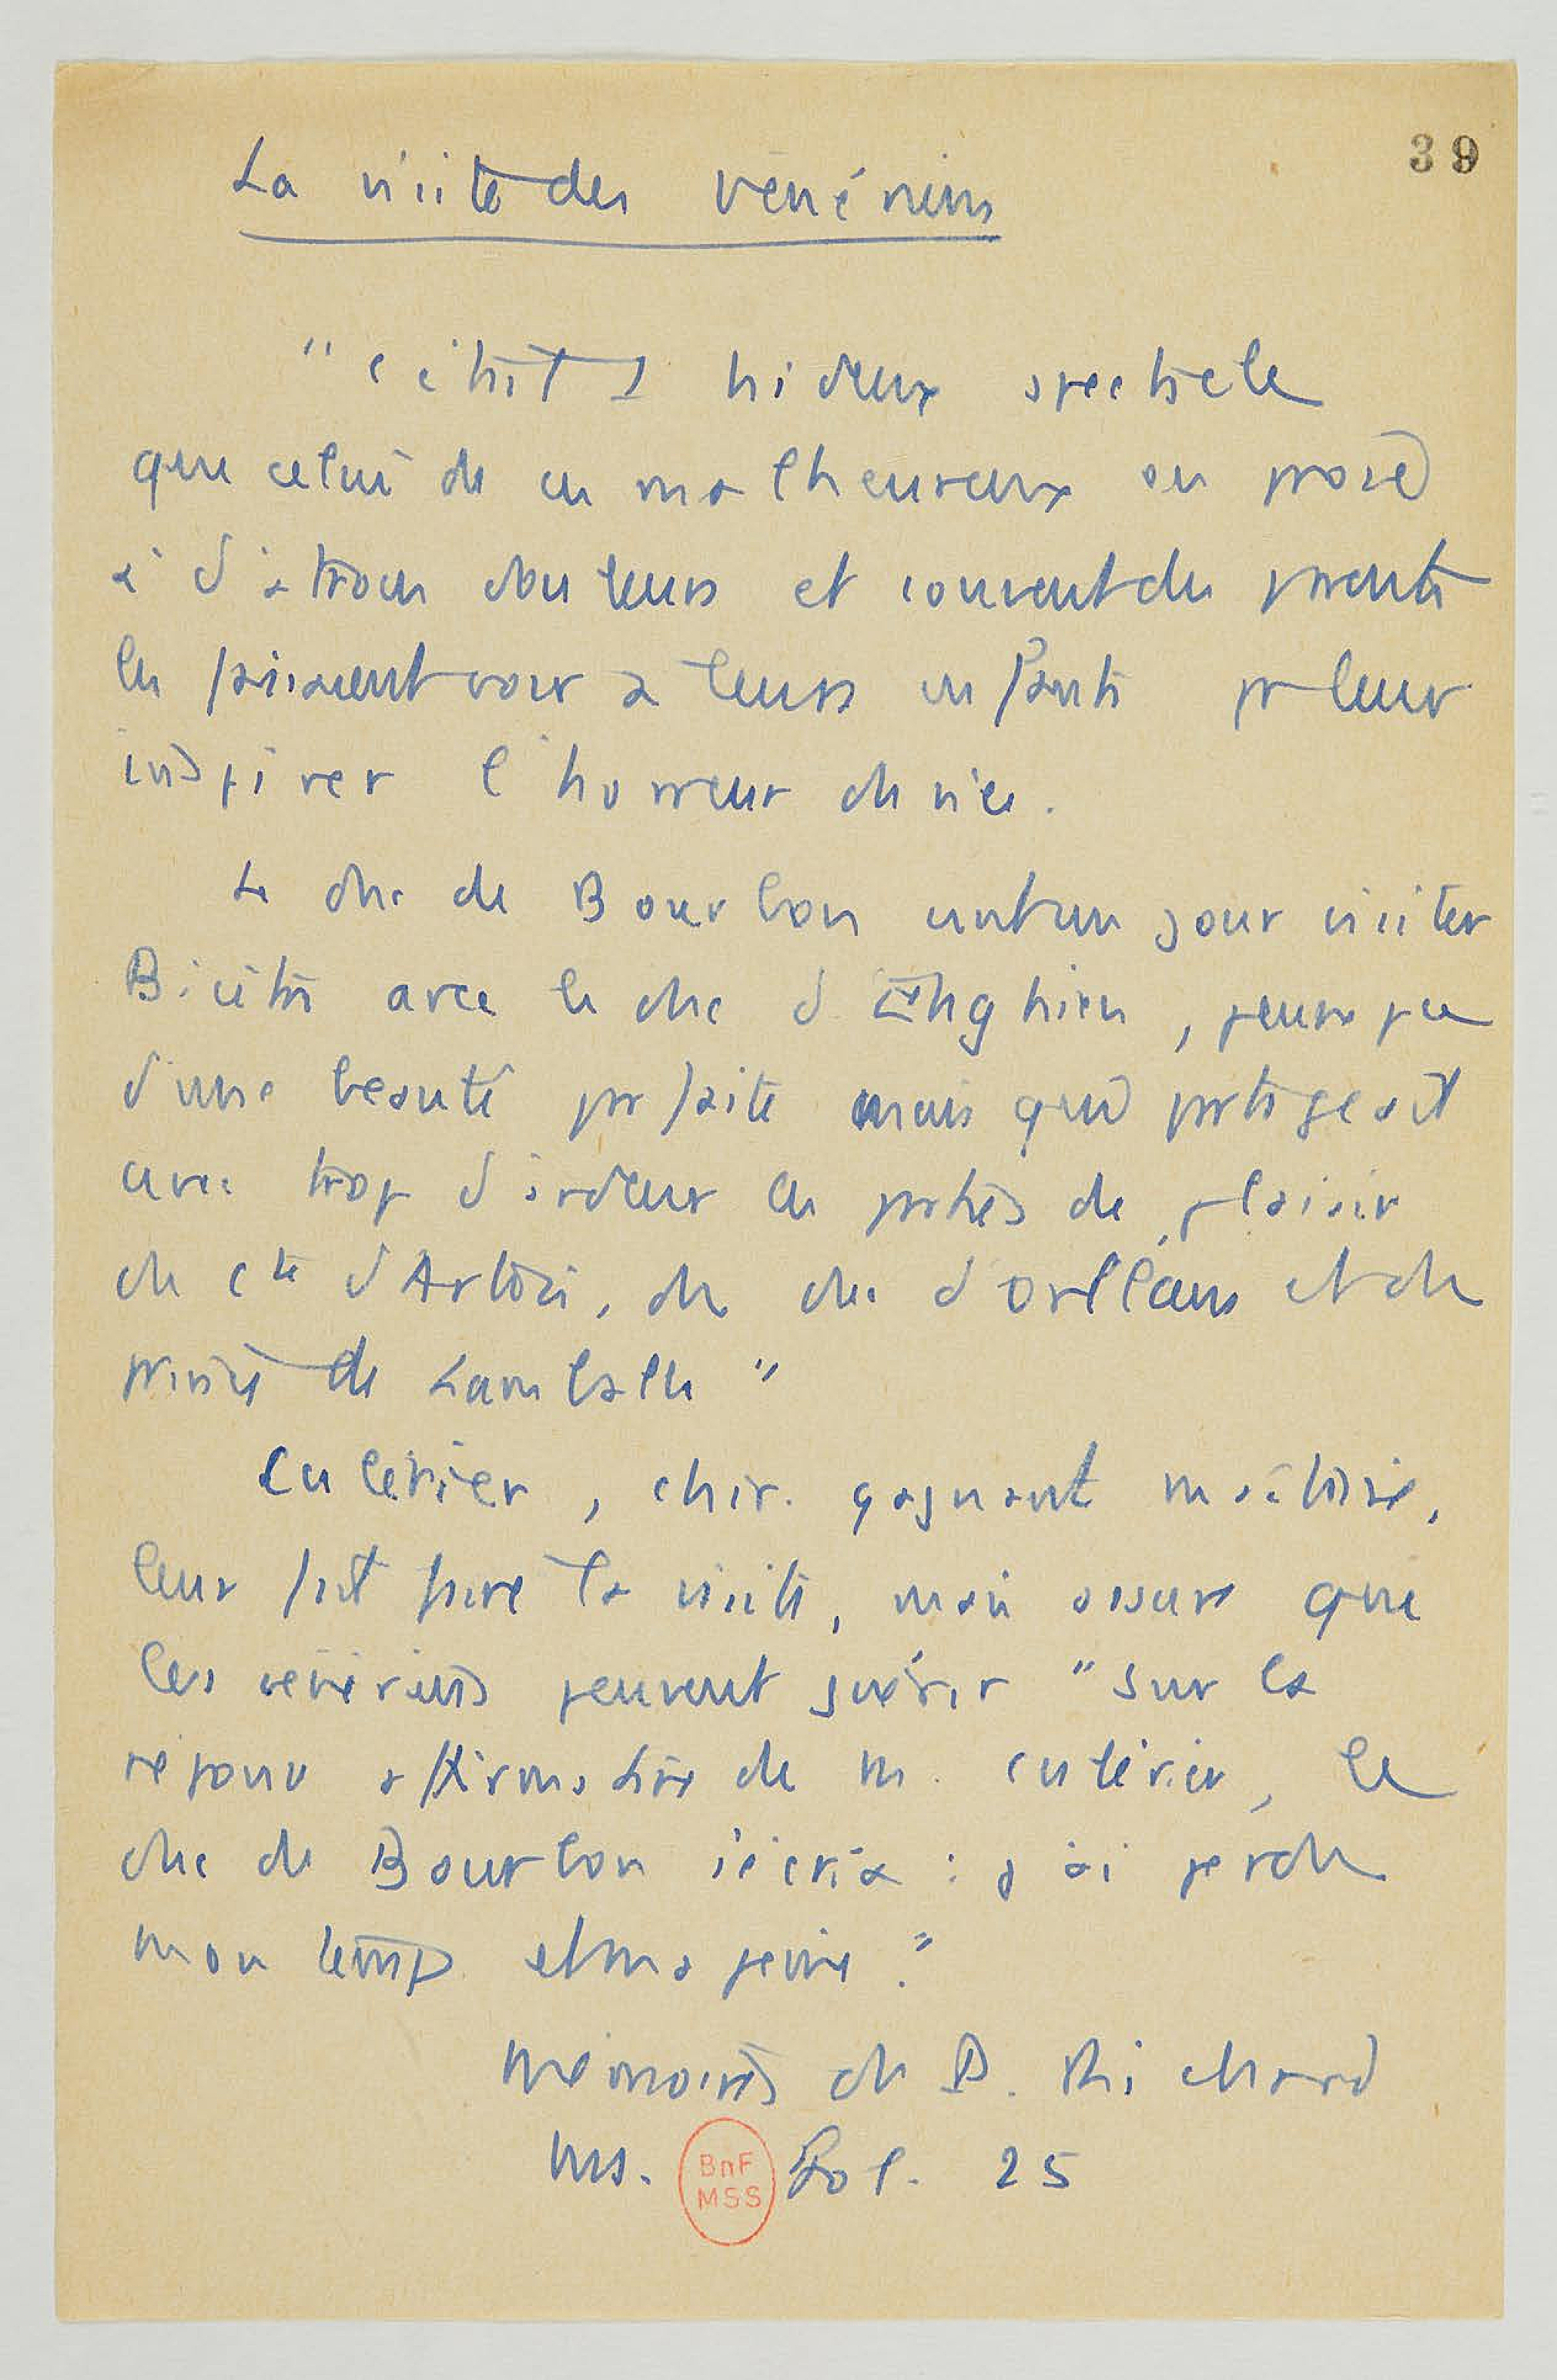 39
La visite des vénériens
"c'était 1 hideux spectacle
que celui de ces malheureux en proie
à d'atroces douleurs et souvent des parents
les faisaient voir à leurs enfants pr leur
inspirer l'horreur du vice.
Le duc de Bourbon vint un jour visiter
Bicêtre avec le duc d'Enghien, jeune
d'une beauté parfaite mais qui partageait
avec trop d'ardeur les parties de plaisir
du cte d'Artois, du duc d'Orléans et du
prince de Lamballe"
Cullerier, chir. gagnant maîtrise,
leur fait faire la visite, mais assure que
les vénériens peuvent guérir "sur la
réponse affirmative de M. Cullerier, le
duc de Bourbon s'écria : j'ai perdu
mon temps et ma peine."
Mémoires du D. Richard
Ms. Fol. 25
BnF
MSS